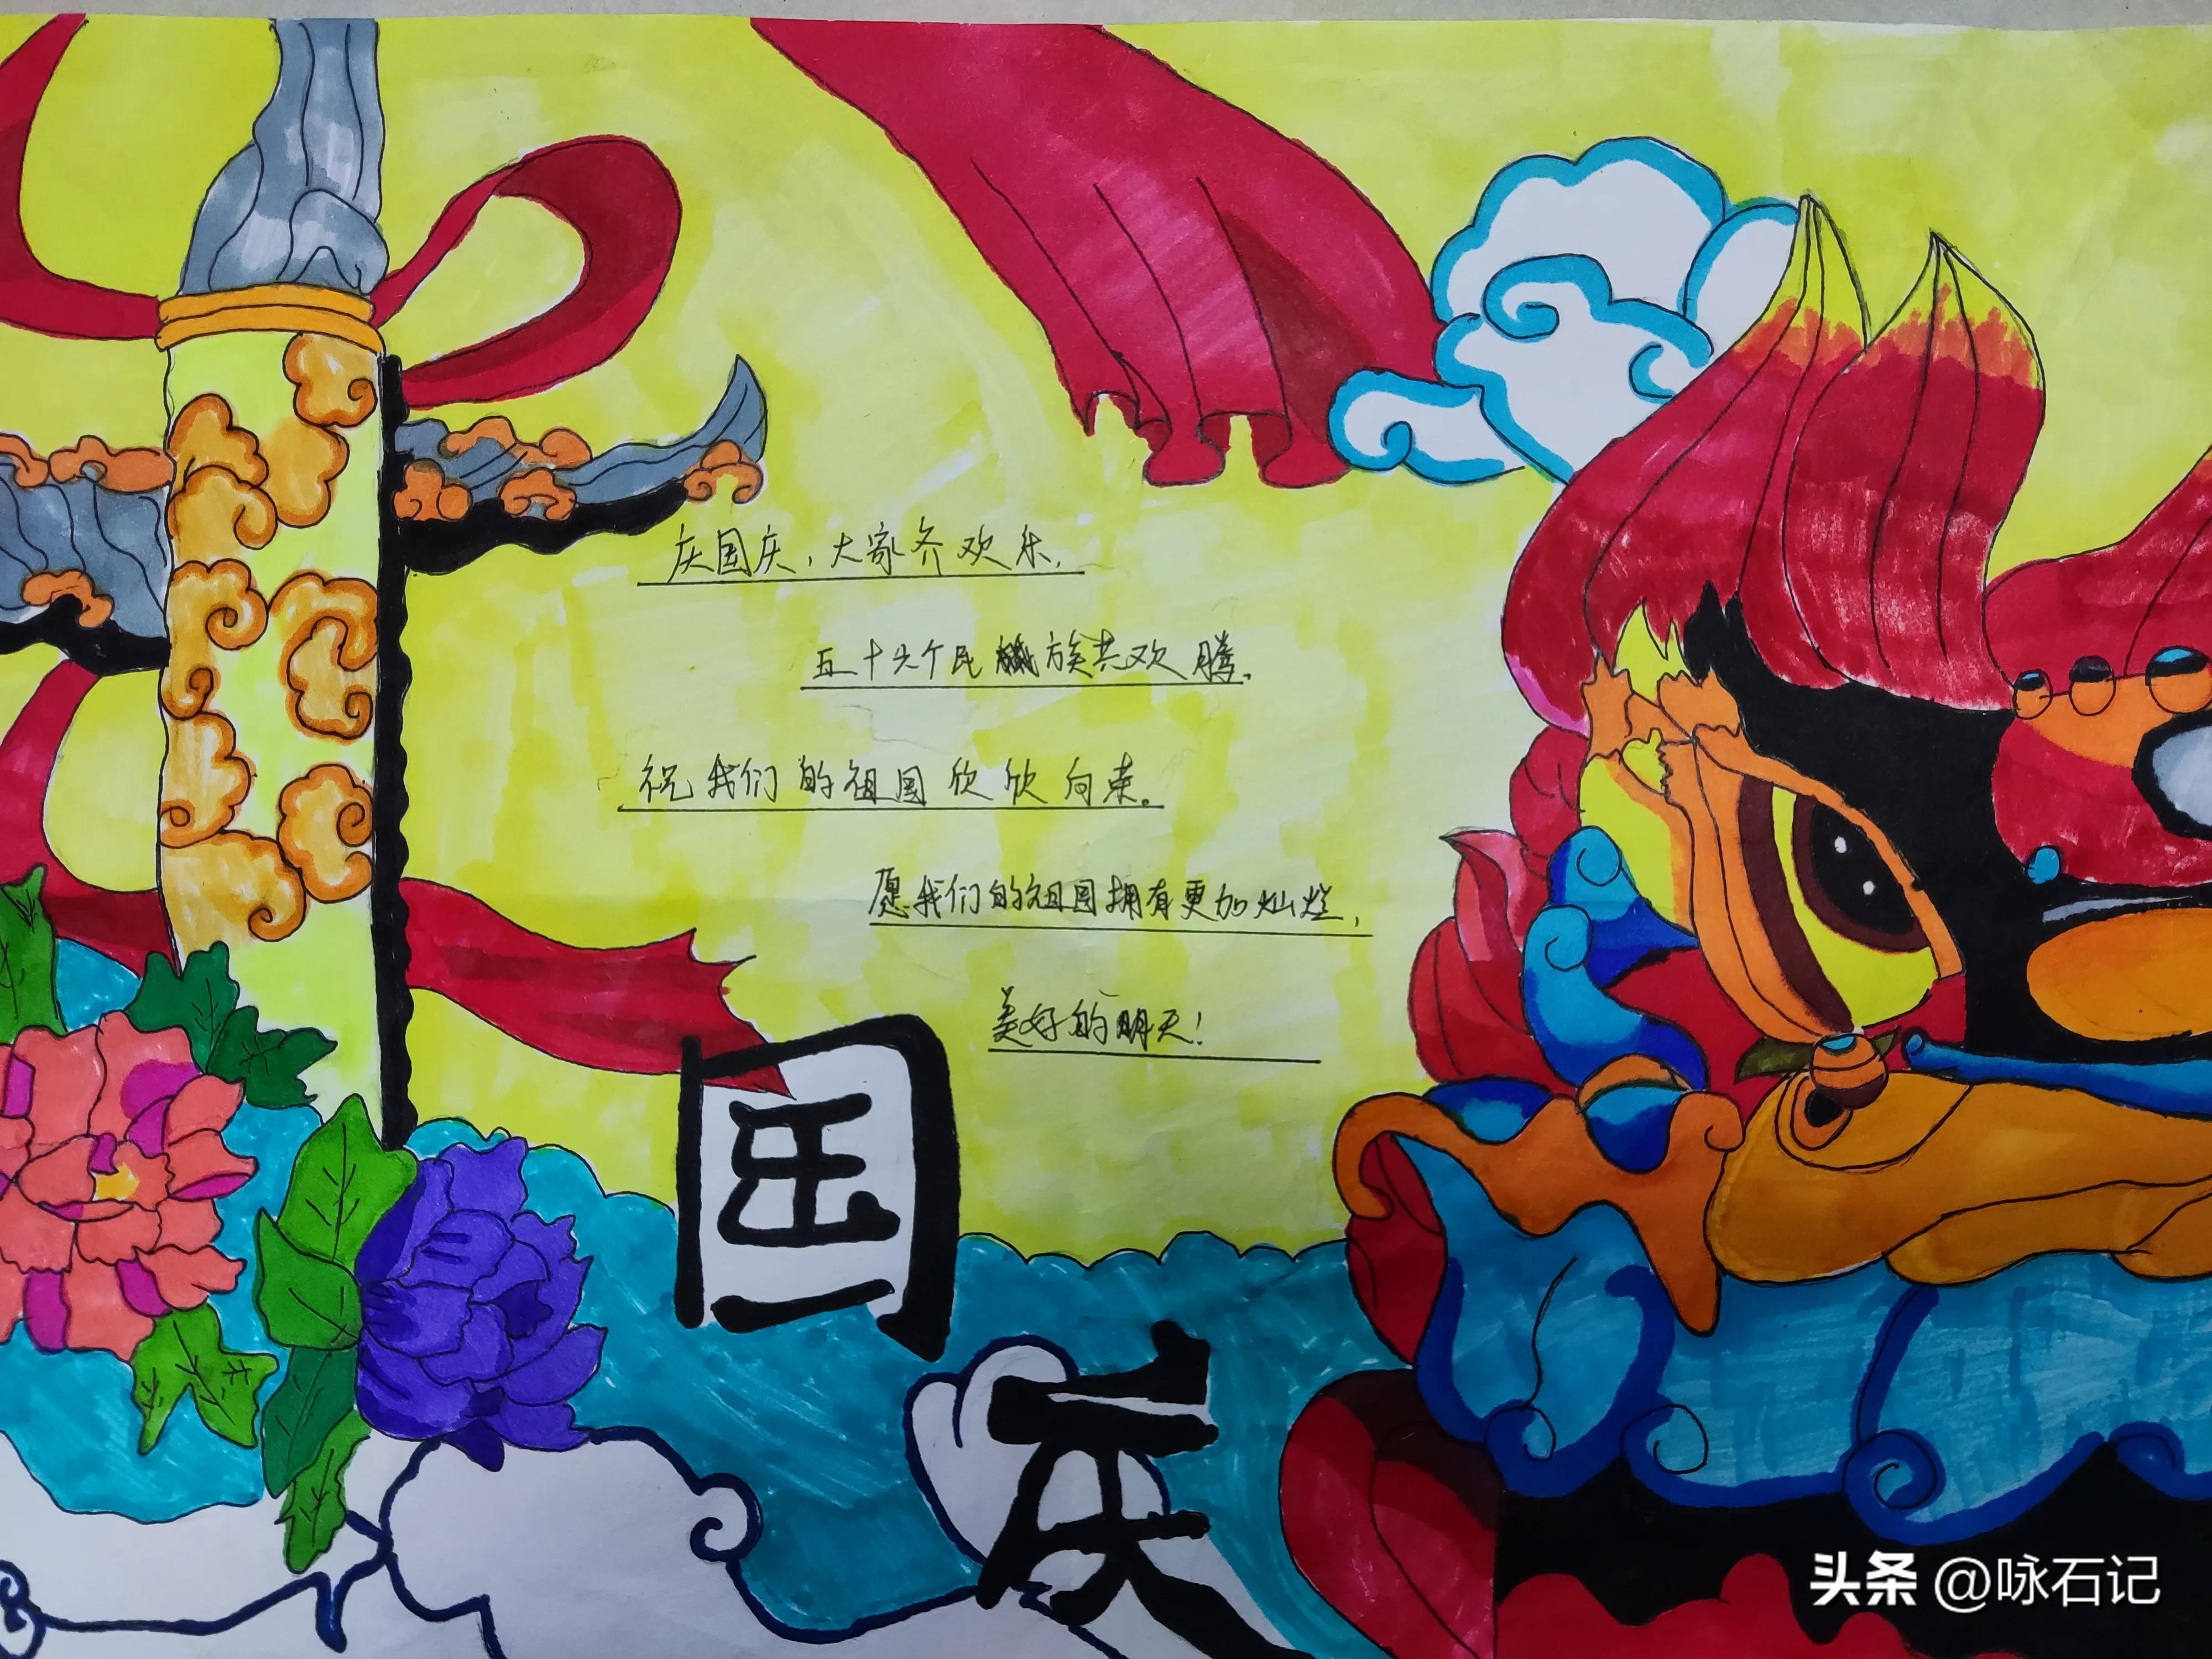 庆国庆，大家齐欢乐，
五十六个民族共欢腾。
祝我们的祖国欣欣向荣。
愿我们的祖国拥有更加灿烂，
美好的明天！
国
庆
头条 @咏石记